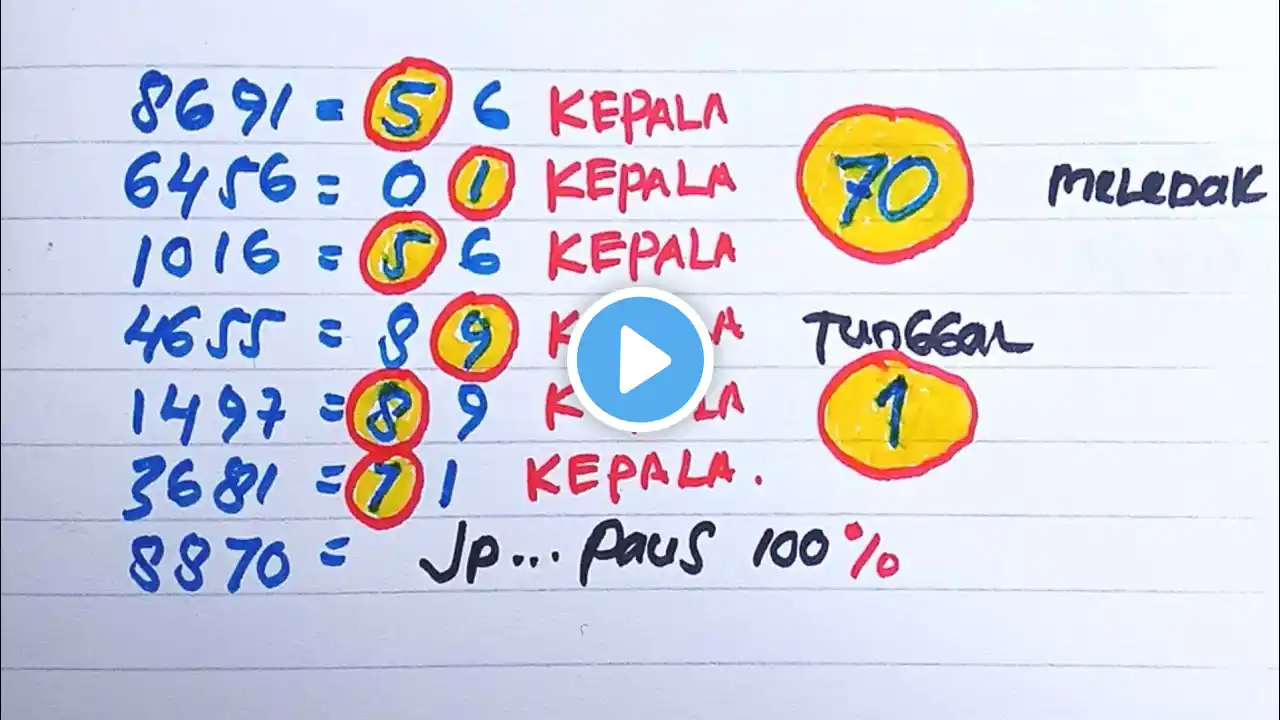 8691 = 5 6 KEPALA
6456 = 0 1 KEPALA
70
MELEDAK
1016 = 5 6 KEPALA
4655 = 8 9
TUNGGAL
1497 = 8 9
1
3681 = 7 1 KEPALA.
8870 = Jp... PAUS 100%